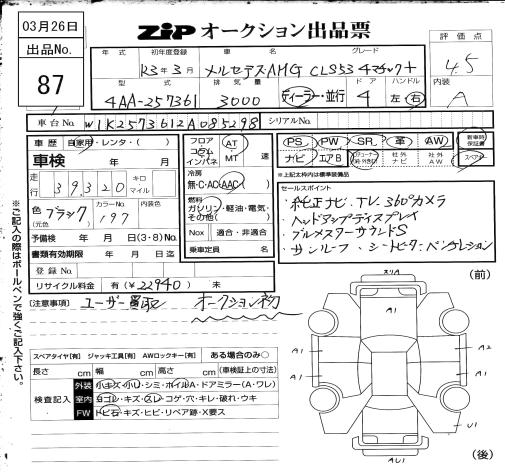 03月26日
出品No.
87
ZIP オークション出品票
評価点
4.5
内装
A
年式 初年度登録 車名 グレード
R3年3月 メルセデスAMG CLS53 4マチック+
型式 排気量 ドア ハンドル
4AA-257361 3000 ディーラー・並行 4 左・右
車台No. W1K2573612A085298 シリアルNo.
車歴 自家用・レンタ・( )
車検 年 月
走行 39320 キロ マイル
色 ブラック (元色) カラーNo. 197 内装色
予備検 年 月 日(3・8)No.
書類有効期限 年 月 日迄
登録No.
リサイクル料金 有(¥22940) 未
フロア コラム インパネ AT MT 速
冷房 無・C・AC・AAC( )
燃料 ガソリン・軽油・電気・その他( )
Nox 適合・非適合
乗車定員 名
PS PW SR 革 AW 新車時保証書
ナビ エアB 社外ナビ 社外AW スペアキー
※上記太枠内は標準装備品
セールスポイント
・純正ナビ、TV、360°カメラ
・ヘッドアップディスプレイ
・ブルメスターサウンドS
・サンルーフ、シートヒーター・ベンチレーション
※ご記入の際はボールペンで強くご記入下さい。
〔注意事項〕 ユーザー買取 オークション初
スペアタイヤ[有] ジャッキ工具[有] AWロックキー[有] ある場合のみ○
長さ cm 幅 cm 高さ cm (車検証上の寸法)
検査記入
外装 小キズ・小U・シミ・ホイルA・ドアミラー(A・ワレ)
室内 ヨゴレ・キズ・スレ・コゲ・穴・キレ・破れ・ウキ
FW トビ石・キズ・ヒビ・リペア跡・X要ス
(前)
A1
A1 A2
A1 A1
U1
AU1
(後)